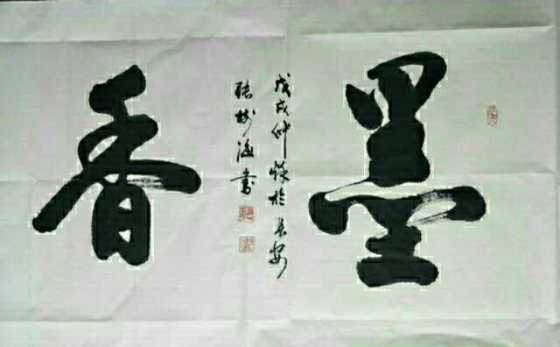 墨
戊戌仲秋於長安
張樹海書
香